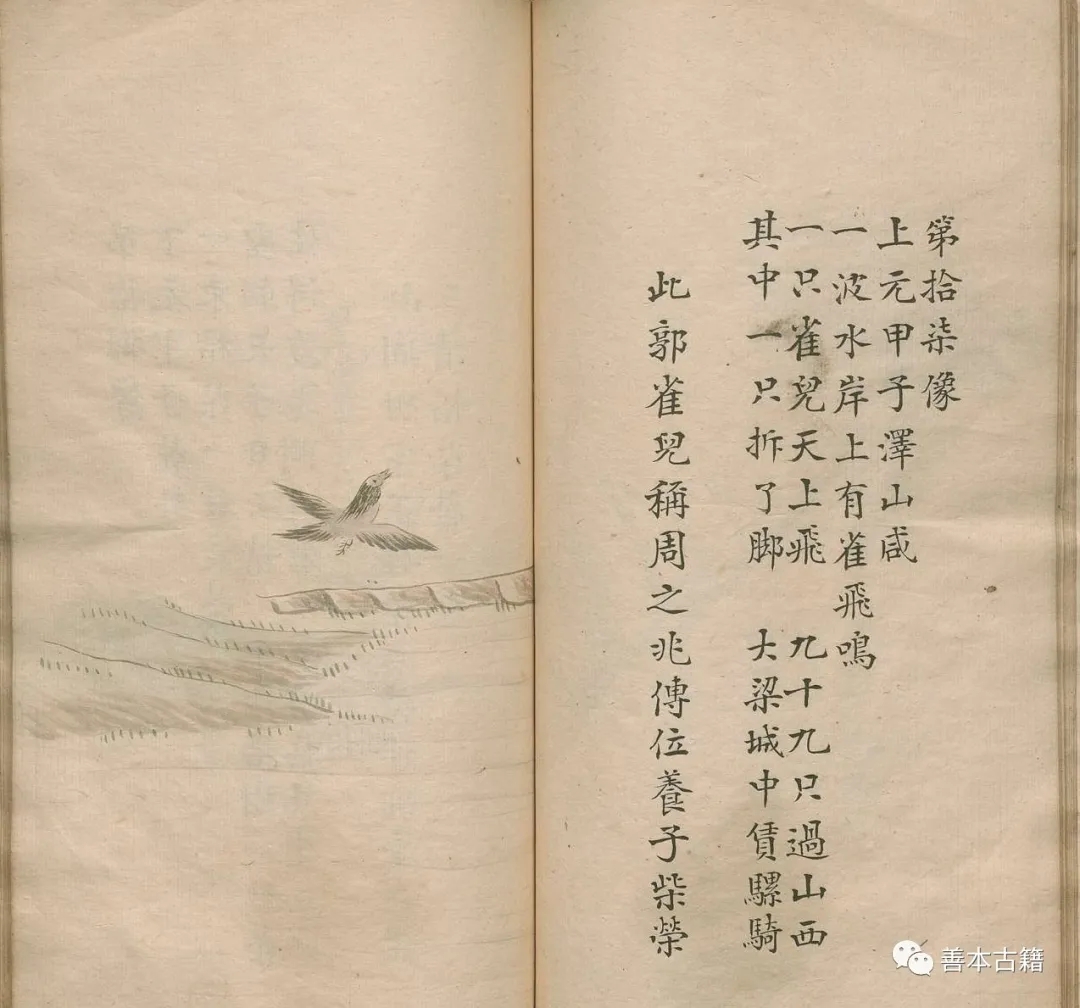 第拾柒像
上元甲子澤山咸
一波水岸上有雀飛鳴
一只雀兒天上飛 九十九只過山西
其中一只拆了脚 大梁城中賃騾騎
此郭雀兒稱周之兆傳位養子柴榮
善本古籍